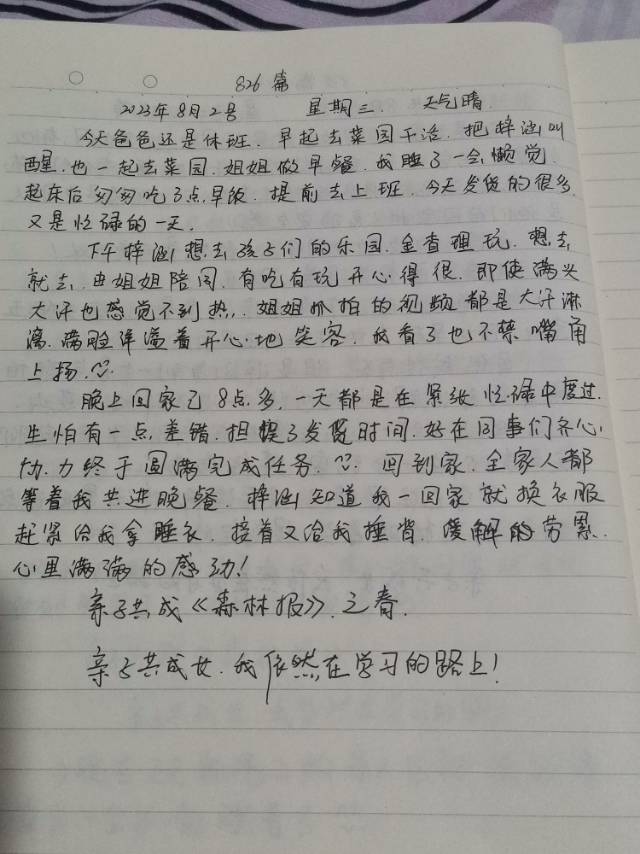 826篇
2023年8月2号 星期三 天气晴
今天爸爸还是休班.早起去菜园干活.把梓涵叫
醒.也一起去菜园.姐姐做早餐.我睡了一会懒觉
起床后匆匆吃了点早饭.提前去上班.今天发货的很多.
又是忙碌的一天.
下午梓涵想去孩子们的乐园.全查理玩.想去
就去.由姐姐陪同.有吃有玩开心得很.即使满头
大汗也感觉不到热.姐姐抓拍的视频都是大汗淋
漓.满脸洋溢着开心地笑容.我看了也不禁嘴角
上扬.
晚上回家已8点多.一天都是在紧张忙碌中度过.
生怕有一点差错.担误了发货时间.好在同事们齐心
协力终于圆满完成任务.回到家.全家人都
等着我共进晚餐.梓涵知道我一回家就换衣服
赶紧给我拿睡衣.接着又给我捶背.缓解的劳累.
心里满满的感动!
亲子共成《森林报》之春.
亲子共成女.我依然在学习的路上!